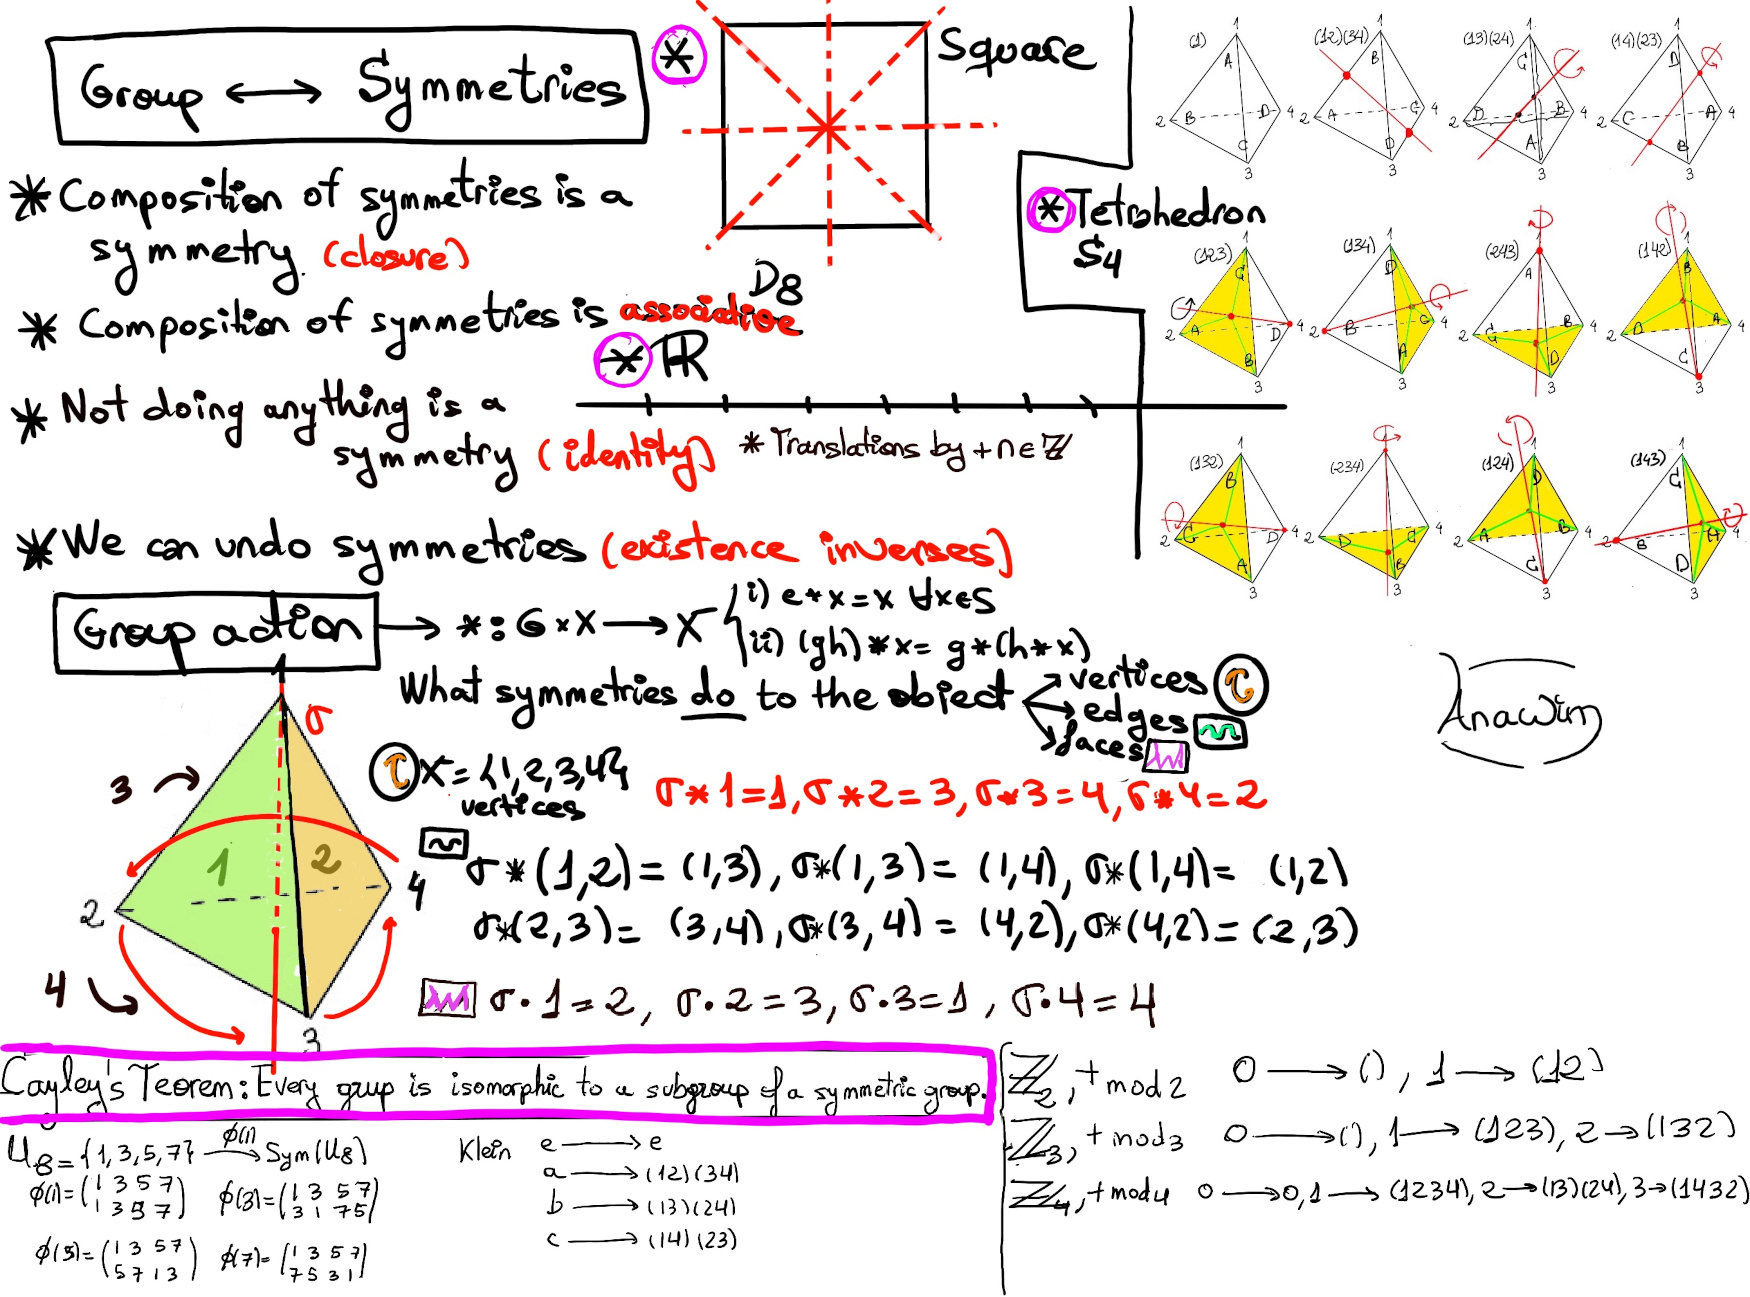 Group ⟷ Symmetries
* Composition of symmetries is a
symmetry. (closure)
* Composition of symmetries is associative
* Not doing anything is a
symmetry (identity)
* We can undo symmetries (existence inverses)
* Square
D8
* ℝ
* Translations by +n∈ℤ
* Tetrahedron
S4
(1) 1 A 2 B D 4 C 3
(12)(34) 1 B 2 A C 4 D 3
(13)(24) 1 C 2 D B 4 A 3
(14)(23) 1 D 2 C A 4 B 3
(123) 1 C 2 A D 4 B 3
(134) 1 D 2 B C 4 A 3
(243) 1 A 2 C B 4 D 3
(142) 1 B 2 D A 4 C 3
(132) 1 B 2 C D 4 A 3
(234) 1 A 2 D C 4 B 3
(124) 1 D 2 A B 4 C 3
(143) 1 C 2 B A 4 D 3
Group action → * : G × X → X
i) e*x=x ∀x∈S
ii) (gh)*x= g*(h*x)
What symmetries do to the object
vertices
edges
faces
Anawim
1 σ
3
1 2
2 4
4
3
X={1,2,3,4}
vertices
σ*1=1, σ*2=3, σ*3=4, σ*4=2
σ*(1,2)= (1,3), σ*(1,3)= (1,4), σ*(1,4)= (1,2)
σ*(2,3)= (3,4), σ*(3,4)= (4,2), σ*(4,2)= (2,3)
σ·1=2, σ·2=3, σ·3=1, σ·4=4
Cayley's Teorem: Every grup is isomorphic to a subgroup of a symmetric group.
U8={1,3,5,7} ϕ(1)→ Sym(U8)
ϕ(1)=(1 3 5 7
1 3 5 7)
ϕ(3)=(1 3 5 7
3 1 7 5)
ϕ(5)=(1 3 5 7
5 7 1 3)
ϕ(7)=(1 3 5 7
7 5 3 1)
Klein e → e
a → (12)(34)
b → (13)(24)
c → (14)(23)
ℤ2, + mod 2 0 → (), 1 → (12)
ℤ3, + mod 3 0 → (), 1 → (123), 2 → (132)
ℤ4, + mod 4 0 → (), 1 → (1234), 2 → (13)(24), 3 → (1432)